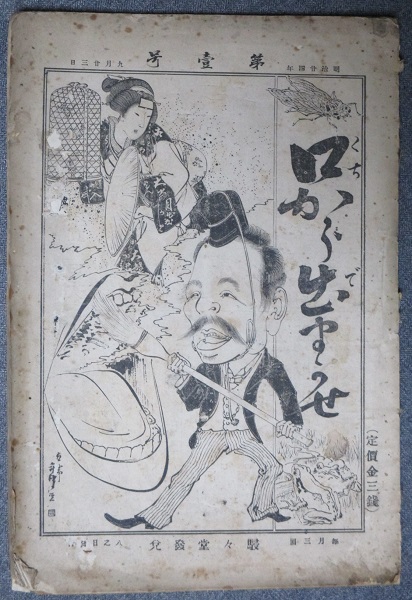 明治廿四年
第壹号
九月廿三日
くち で
口から出ませ
(定價金三錢)
毎月三回
駸々堂發兌
八之日發